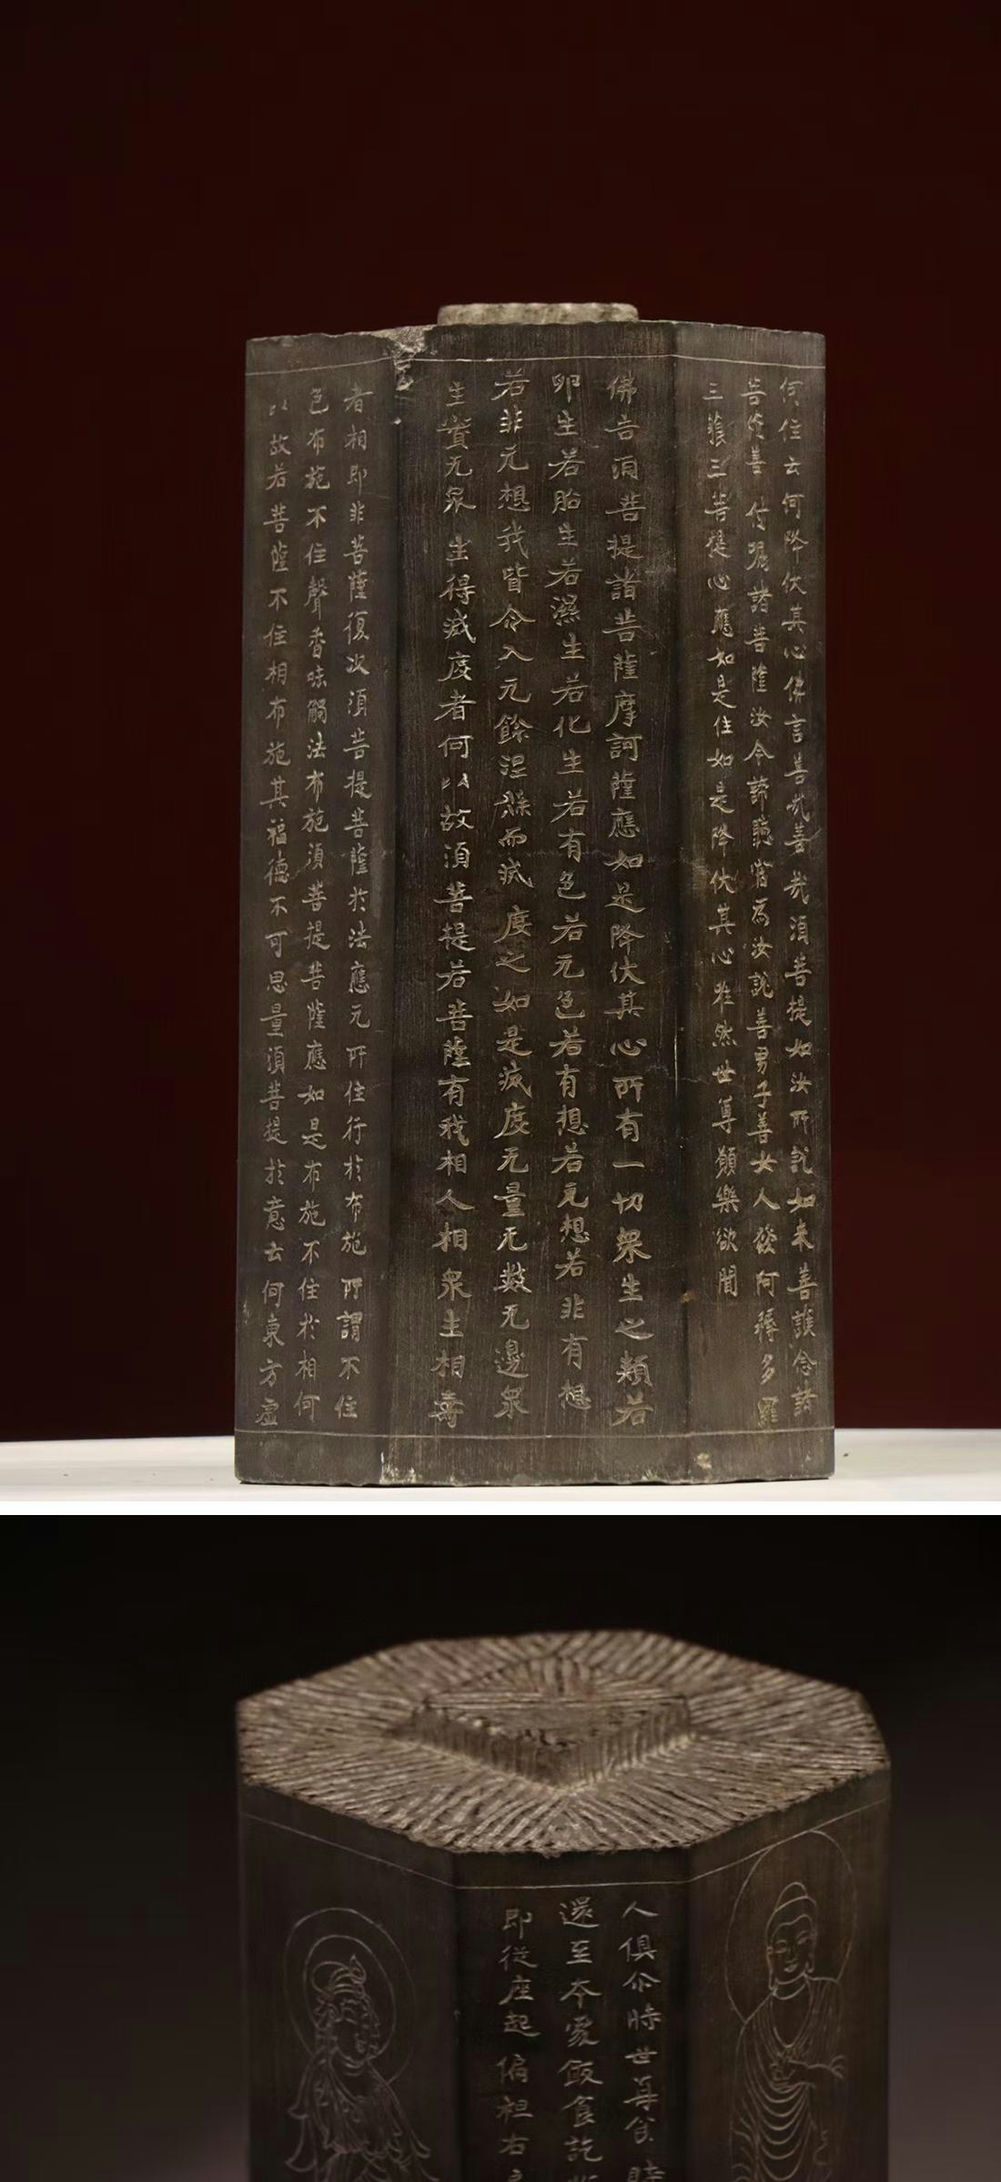 何住云何降伏其心佛言善哉善哉須菩提如汝所說如來善護念諸
菩薩善付囑諸菩薩汝今諦聽當為汝說善男子善女人發何耨多羅
三藐三菩提心應如是住如是降伏其心唯然世尊願樂欲聞
佛告須菩提諸菩薩摩訶薩應如是降伏其心所有一切眾生之類若
卵生若胎生若濕生若化生若有色若无色若有想若无想若非有想
若非元想我皆令入无餘涅槃而滅度之如是滅度无量无數无邊眾
生實无眾生得滅度者何以故須菩提若菩薩有我相人相眾生相壽
者相即非菩薩復次須菩提菩薩於法應无所住行於布施所謂不住
色布施不住聲香味觸法布施須菩提菩薩應如是布施不住於相何
以故若菩薩不住相布施其福德不可思量須菩提於意云何東方虛
人俱尒時世尊食時
還至本處飯食訖
即從座起偏袒右